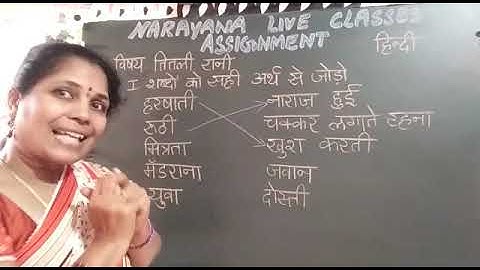 NARAYANA LIVE CLASSES
ASSIGNMENT हिन्दी
विषय तितली रानी
I शब्दों को सही अर्थ से जोड़ो
हरषाती नाराज हुई
रूठी चक्कर लगाते रहना
मित्रता खुश करती
मँडराना जवान
युवा दोस्ती